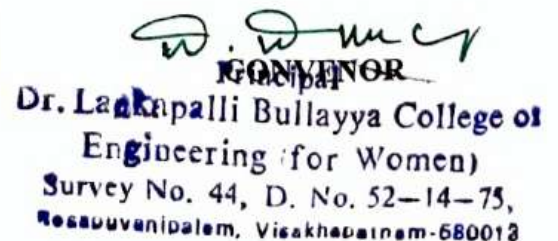 CONVENOR
Principal
Dr. Lankapalli Bullayya College of
Engineering (for Women)
Survey No. 44, D. No. 52-14-75,
Resapuvanipalem, Visakhapatnam-530013